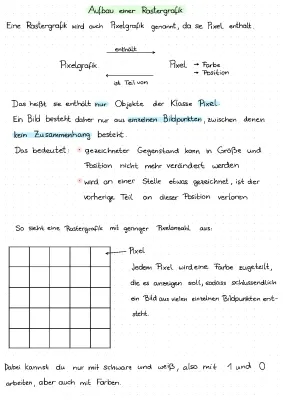 Aufbau einer Rastergrafik
Eine Rastergrafik wird auch Pixelgrafik genannt, da sie Pixel enthält.
enthält
Pixelgrafik
Pixel → Farbe
→ Position
ist Teil von
Das heißt sie enthält nur Objekte der Klasse Pixel.
Ein Bild besteht daher nur aus einzelnen Bildpunkten, zwischen denen
kein Zusammenhang besteht.
Das bedeutet: * gezeichneter Gegenstand kann in Größe und
Position nicht mehr verändert werden
* wird an einer Stelle etwas gezeichnet, ist der
vorherige Teil an dieser Position verloren
So sieht eine Rastergrafik mit geringer Pixelanzahl aus:
Pixel
Jedem Pixel wird eine Farbe zugeteilt,
die es anzeigen soll, sodass schlussendlich
ein Bild aus vielen einzelnen Bildpunkten ent-
steht.
Dabei kannst du nur mit schwarz und weiß, also mit 1 und 0
arbeiten, aber auch mit Farben.